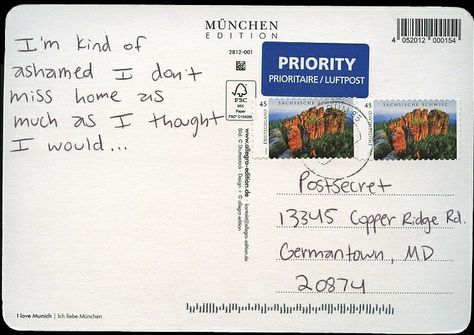 I'm kind of
ashamed I don't
miss home as
much as I thought
I would...
MÜNCHEN
EDITION
2812-001
PRIORITY
PRIORITAIRE / LUFTPOST
4 052012 000154
FSC
MIX
Paper
FSC® C104396
www.allegro-edition.de
45 SÄCHSISCHE SCHWEIZ
DEUTSCHLAND
45 SÄCHSISCHE SCHWEIZ
DEUTSCHLAND
Postsecret
13345 Copper Ridge Rd.
Germantown, MD
20874
I love Munich | Ich liebe München